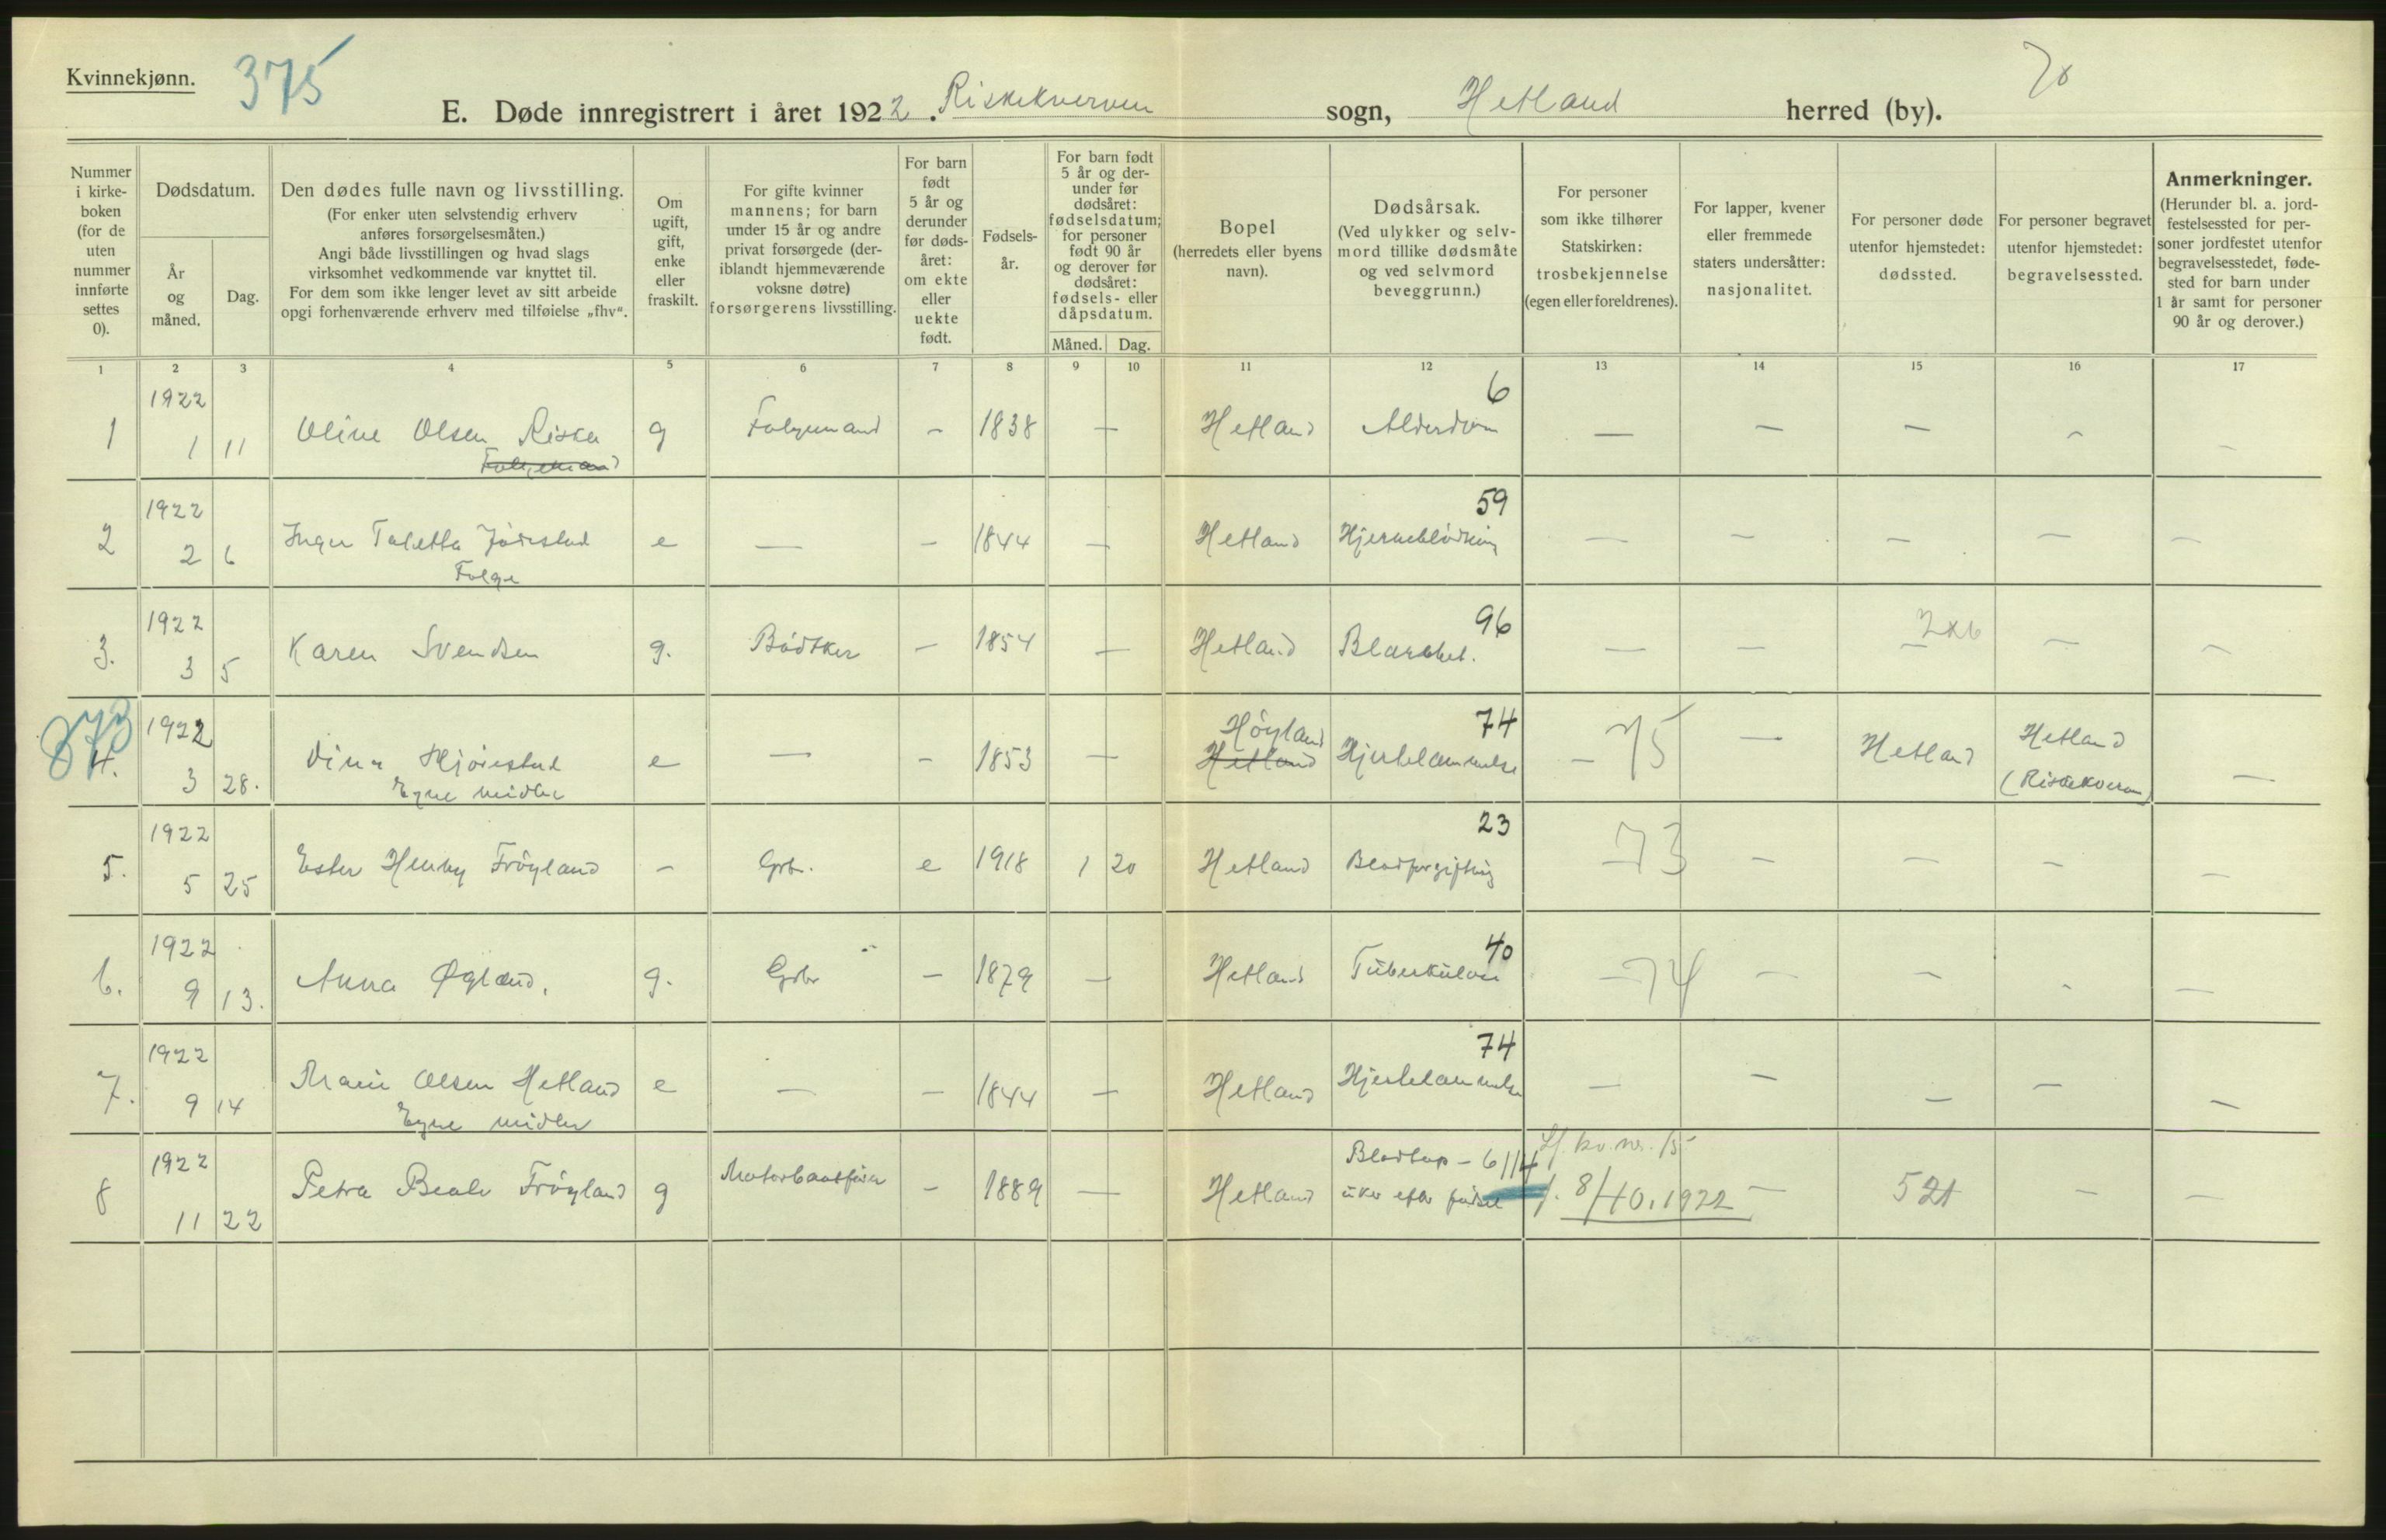 Kvinnekjønn.
375
E. Døde innregistrert i året 1922. Riskekverven sogn, Hetland herred (by).
Nummer i kirke-boken (for de uten nummer innførte settes 0).
Dødsdatum.
År og måned.
Dag.
Den dødes fulle navn og livsstilling.
(For enker uten selvstendig erhverv
anføres forsørgelsesmåten.)
Angi både livsstillingen og hvad slags
virksomhet vedkommende var knyttet til.
For dem som ikke lenger levet av sitt arbeide
opgi forhenværende erhverv med tilføielse „fhv“.
Om ugift, gift, enke eller fraskilt.
For gifte kvinner
mannens; for barn
under 15 år og andre
privat forsørgede (der-
iblandt hjemmeværende
voksne døtre)
forsørgerens livsstilling.
For barn født 5 år og derunder før døds-året: om ekte eller uekte født.
Fødsels-år.
For barn født
5 år og der-
under før
dødsåret:
fødselsdatum;
for personer
født 90 år
og derover før
dødsåret:
fødsels- eller
dåpsdatum.
Måned. Dag.
Bopel
(herredets eller byens
navn).
Dødsårsak.
(Ved ulykker og selv-
mord tillike dødsmåte
og ved selvmord
beveggrunn.)
For personer
som ikke tilhører
Statskirken:
trosbekjennelse
(egen eller foreldrenes).
For lapper, kvener
eller fremmede
staters undersåtter:
nasjonalitet.
For personer døde
utenfor hjemstedet:
dødssted.
For personer begravet
utenfor hjemstedet:
begravelsessted.
Anmerkninger.
(Herunder bl. a. jord-
festelsessted for per-
soner jordfestet utenfor
begravelsesstedet, føde-
sted for barn under
1 år samt for personer
90 år og derover.)
1 2 3 4 5 6 7 8 9 10 11 12 13 14 15 16 17
1922 6
1 1 11 Oline Olsen Riska g Folgemand - 1838 — Hetland Alderdom — — — — —
Folgemand
1922 59
2 2 6 Inger Taletta Jörestad e — - 1844 — Hetland Hjerneblödning — — — — —
Folge
1922 96
3. 3 5 Karen Svendsen g. Bödtker - 1854 — Hetland — — — — —
373 1922 Höyland 74
4. 3 28. e — - 1853 — Hetland Hjertelammelse — 75 — Hetland Hetland —
Egne midler (Riskekverven)
1922 23
5. 5 25 Ester Henny Fröyland - Grbr. e 1918 1 20 Hetland Blodforgiftning — 73 — — — —
1922 40
6. 9 13. Anna Øgland. g. Grbr - 1879 — Hetland Tüberkülose — 74 — — - —
1922 74
7. 9 14 Marie Olsen Hetland e — — 1844 — Hetland Hjertelammelse — — — — —
Egne midler
1922 Blodtap - 6 114 kv. nr. 15
8 11 22 Petra Fröyland g Motorbaatförer - 1889 — Hetland üker efter födsel f. 8/10. 1922 — 521 — —